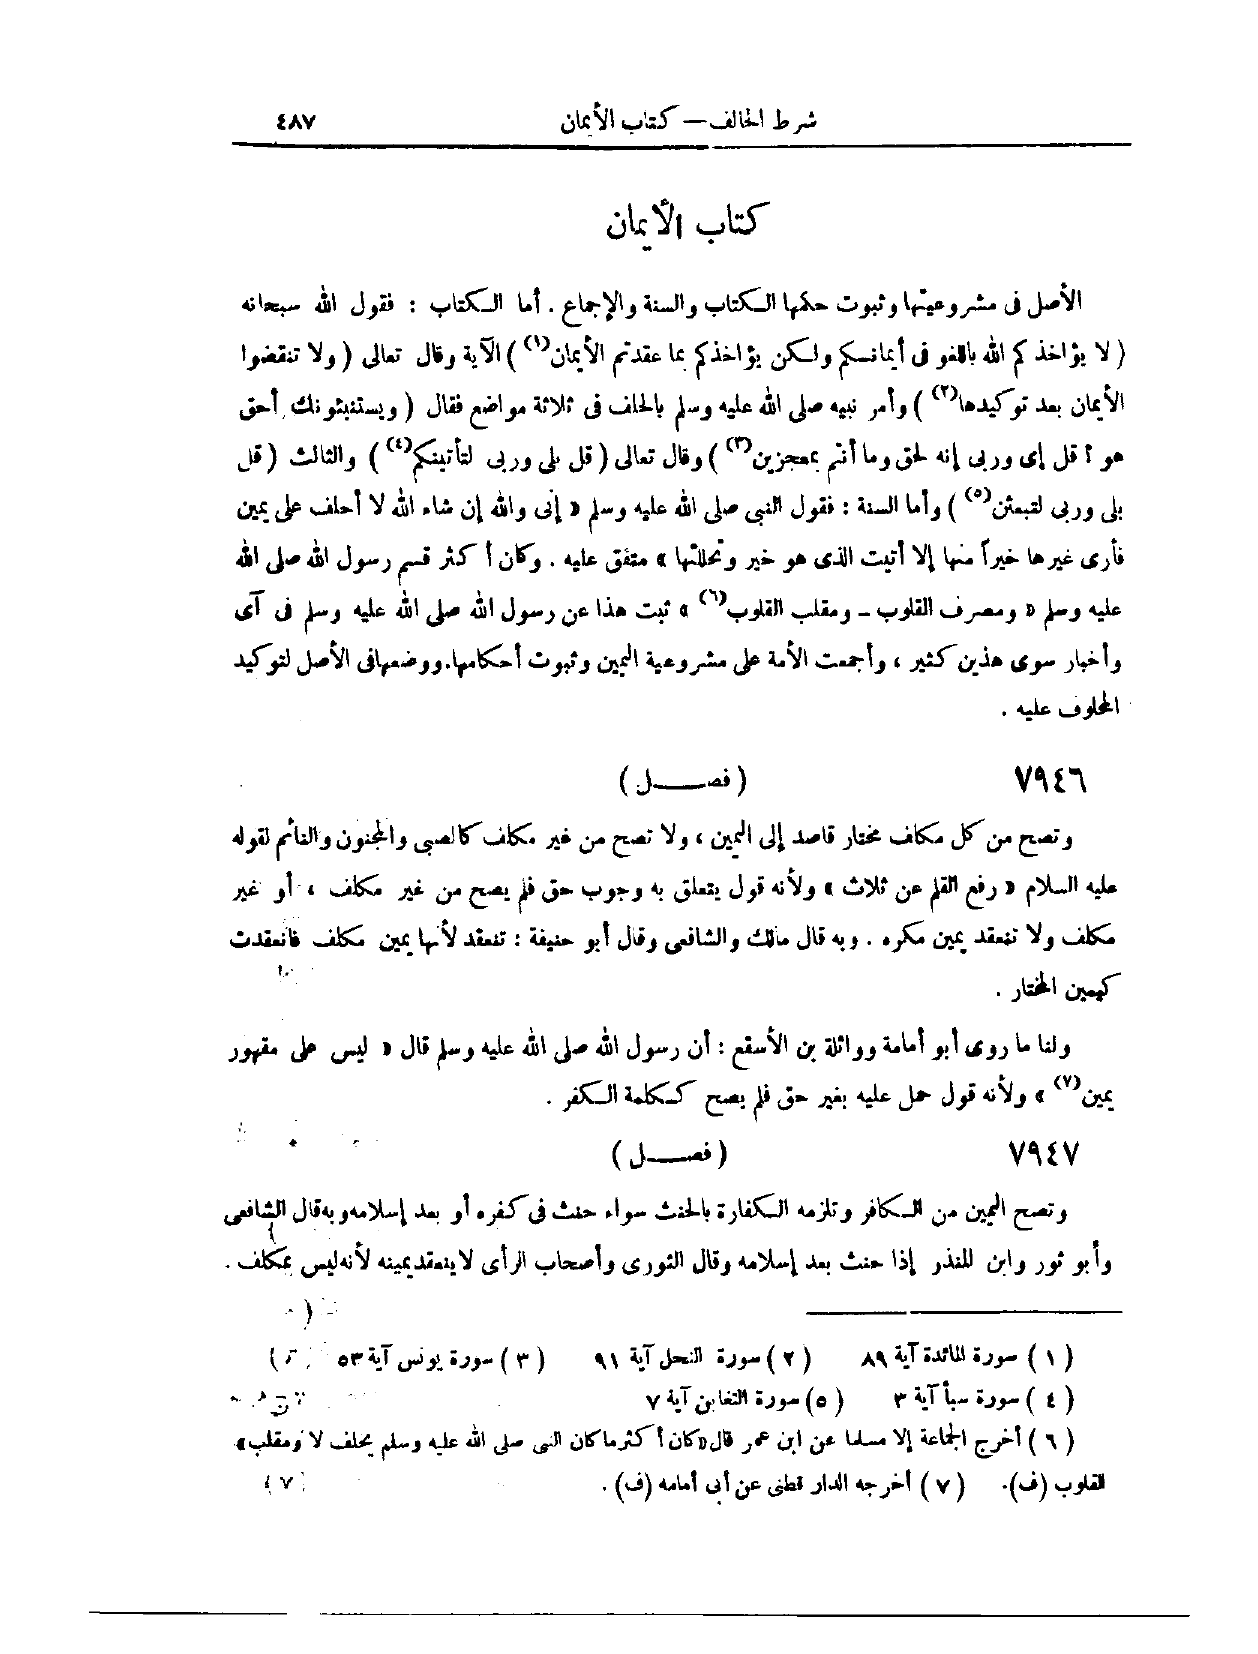 شرط الحالف — كتاب الأيمان ٤٨٧
كتاب الأيمان
الأصل فى مشروعيتها وثبوت حكمها الكتاب والسنة والإجماع . أما الكتاب : فقول الله سبحانه
( لا يؤاخذكم الله باللغو فى أيمانكم ولكن يؤاخذكم بما عقدتم الأيمان(١) ) الآية وقال تعالى ( ولا تنقضوا
الأيمان بعد توكيدها(٢) ) وأمر نبيه صلى الله عليه وسلم بالحلف فى ثلاثة مواضع فقال ( ويستنبئونك أحق
هو ؟ قل إى وربى إنه لحق وما أنتم بمعجزين(٣) ) وقال تعالى ( قل بلى وربى لتأتينكم(٤) ) والثالث ( قل
بلى وربى لتبعثن(٥) ) وأما السنة : فقول النبى صلى الله عليه وسلم « إنى والله إن شاء الله لا أحلف على يمين
فأرى غيرها خيراً منها إلا أتيت الذى هو خير وتحللتها » متفق عليه . وكان أكثر قسم رسول الله صلى الله
عليه وسلم « ومصرف القلوب ـ ومقلب القلوب(٦) » ثبت هذا عن رسول الله صلى الله عليه وسلم فى آى
وأخبار سوى هذين كثير ، وأجمعت الأمة على مشروعية اليمين وثبوت أحكامها.ووضعهافى الأصل لتوكيد
المحلوف عليه .
٧٩٤٦ ( فصـــل )
وتصح من كل مكلف مختار قاصد إلى اليمين ، ولا تصح من غير مكلف كالصبى والمجنون والنائم لقوله
عليه السلام « رفع القلم عن ثلاث » ولأنه قول يتعلق به وجوب حق فلم يصح من غير مكلف ، أو غير
مكلف ولا تنعقد يمين مكره . وبه قال مالك والشافعى وقال أبو حنيفة : تنعقد لأنها يمين مكلف فانعقدت
كيمين المختار .
ولنا ما روى أبو أمامة وواثلة بن الأسقع : أن رسول الله صلى الله عليه وسلم قال « ليس على مقهور
يمين(٧) » ولأنه قول حمل عليه بغير حق فلم يصح ككلمة الكفر .
٧٩٤٧ ( فصـــل )
وتصح اليمين من الكافر وتلزمه الكفارة بالحنث سواء حنث فى كفره أو بعد إسلامه وبه قال الشافعى
وأبو ثور وابن المنذر إذا حنث بعد إسلامه وقال الثورى وأصحاب الرأى لا ينعقد يمينه لأنه ليس بمكلف .
( ١ ) سورة المائدة آية ٨٩ ( ٢ ) سورة النحل آية ٩١ ( ٣ ) سورة يونس آية ٥٣
( ٤ ) سورة سبأ آية ٣ ( ٥ ) سورة التغابن آية ٧
( ٦ ) أخرج الجماعة إلا مسلما عن ابن عمر قال«كان أكثر ما كان النبى صلى الله عليه وسلم يحلف لا ومقلب»
القلوب (ف). ( ٧ ) أخرجه الدار قطنى عن أبى أمامه (ف) .